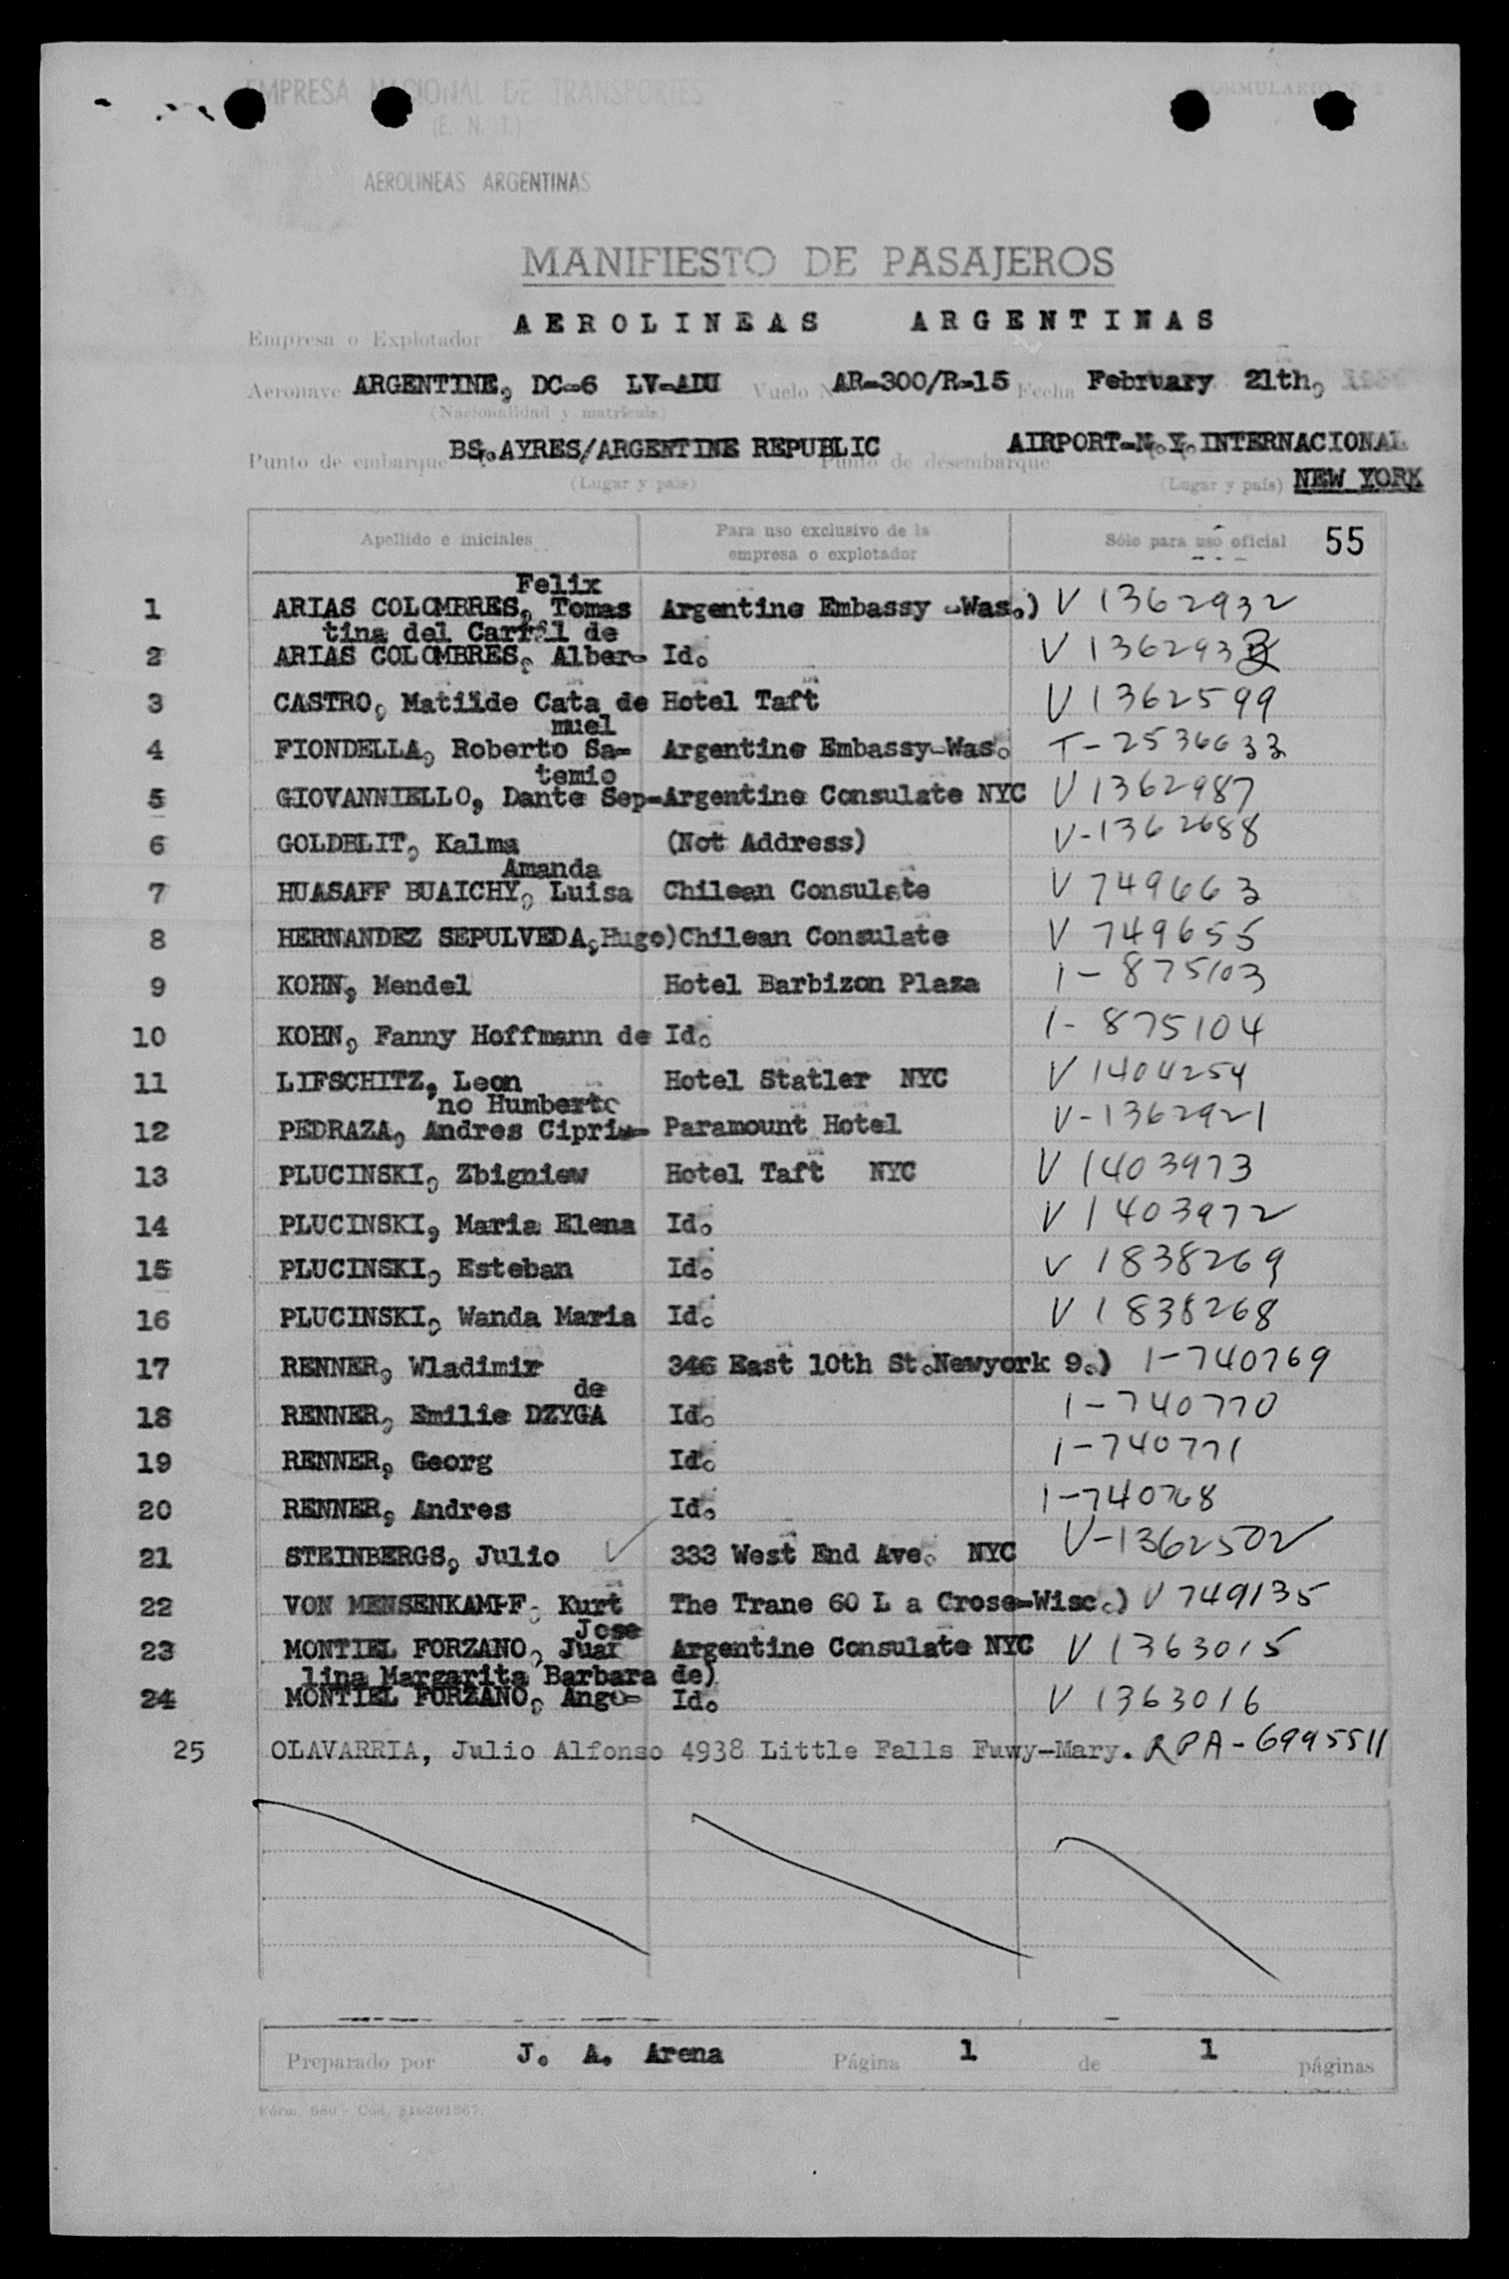 EMPRESA NACIONAL DE TRANSPORTES
FORMULARIO Nº 2
(E. N. T.)
AEROLINEAS ARGENTINAS
MANIFIESTO DE PASAJEROS
Empresa o Explotador AEROLINEAS ARGENTINAS
Aeronave ARGENTINE, DC-6 LV-ADU Vuelo N AR-300/R-15 Fecha February 21th,
(Nacionalidad y matrícula)
Punto de embarque BS.AYRES/ARGENTINE REPUBLIC Punto de desembarque AIRPORT-N.Y.INTERNACIONAL
(Lugar y país) (Lugar y país) NEW YORK
Apellido e iniciales Para uso exclusivo de la empresa o explotador Sólo para uso oficial 55
Felix
1 ARIAS COLOMBRES, Tomas Argentine Embassy -Was.) V 1362932
tina del Carril de
2 ARIAS COLOMBRES, Alber- Id. V 1362933
3 CASTRO, Matilde Cata de Hotel Taft V 1362599
muel
4 FIONDELLA, Roberto Sa- Argentine Embassy-Was. T-2536633
temio
5 GIOVANNIELLO, Dante Sep-Argentine Consulate NYC V 1362987
6 GOLDBLIT, Kalma (Not Address) V-1362688
Amanda
7 HUASAFF BUAICHY, Luisa Chilean Consulate V 749663
8 HERNANDEZ SEPULVEDA,Hugo)Chilean Consulate V 749655
9 KOHN, Mendel Hotel Barbizon Plaza I-875103
10 KOHN, Fanny Hoffmann de Id. I-875104
11 LIFSCHITZ, Leon Hotel Statler NYC V 1404254
no Humberto
12 PEDRAZA, Andres Cipria- Paramount Hotel V-1362921
13 PLUCINSKI, Zbigniew Hotel Taft NYC V 1403973
14 PLUCINSKI, Maria Elena Id. V 1403972
15 PLUCINSKI, Esteban Id. V 1838269
16 PLUCINSKI, Wanda Maria Id. V 1838268
17 RENNER, Wladimir 346 East 10th St.Newyork 9.) I-740769
de
18 RENNER, Emilie DZYGA Id. I-740770
19 RENNER, Georg Id. I-740771
20 RENNER, Andres Id. I-740768
21 STEINBERGS, Julio 333 West End Ave. NYC V-1362502
22 VON MENSENKAMPF, Kurt The Trane 60 L a Crose-Wisc.) V 749135
Jose
23 MONTIEL FORZANO, Juan Argentine Consulate NYC V 1363015
lina Margarita Barbara de)
24 MONTIEL FORZANO, Ange- Id. V 1363016
25 OLAVARRIA, Julio Alfonso 4938 Little Falls Fuwy-Mary. RPA-6995511
Preparado por J. A. Arena Página 1 de 1 páginas